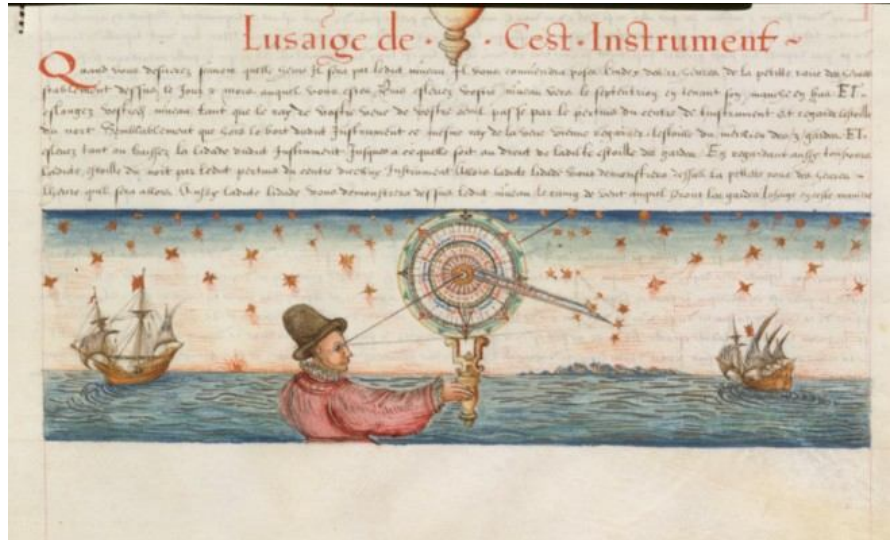 Lusaige de · · Cest · Instrument ~
Quand vous desirerez sçavoir quelle heure Il sera par ledict niveau Il vous conviendra poser lindex des heures de la petitte roue des heures
Justement dessus le Jour & mois auquel vous estes Puis eslevez vostre niveau vers le septentrion en tenant son manche en bas ET
eslongez vostredict niveau tant que le ray de vostre veue de vostre oeuil passe par le pertuis du centre de linstrument et regarde lestoille
du nort Semblablement que hors le bort dudict Instrument ce mesme ray de la veue vienne regarder lestoille du des gardes ET
eslevez tant ou baissez la lidade dudict Instrument Jusques a ce quelle soit au droit de ladicte estoille des gardes En regardant aussy tousjours
ladicte estoille du nort par ledict pertuis du centre Instrument Allors ladicte lidade vous demonstrera dessus la petitte roue des heures
lheure quil sera allors Aussy ladicte lidade vous demonstrera dessus ledict niveau le de vent auquel seront les gardes